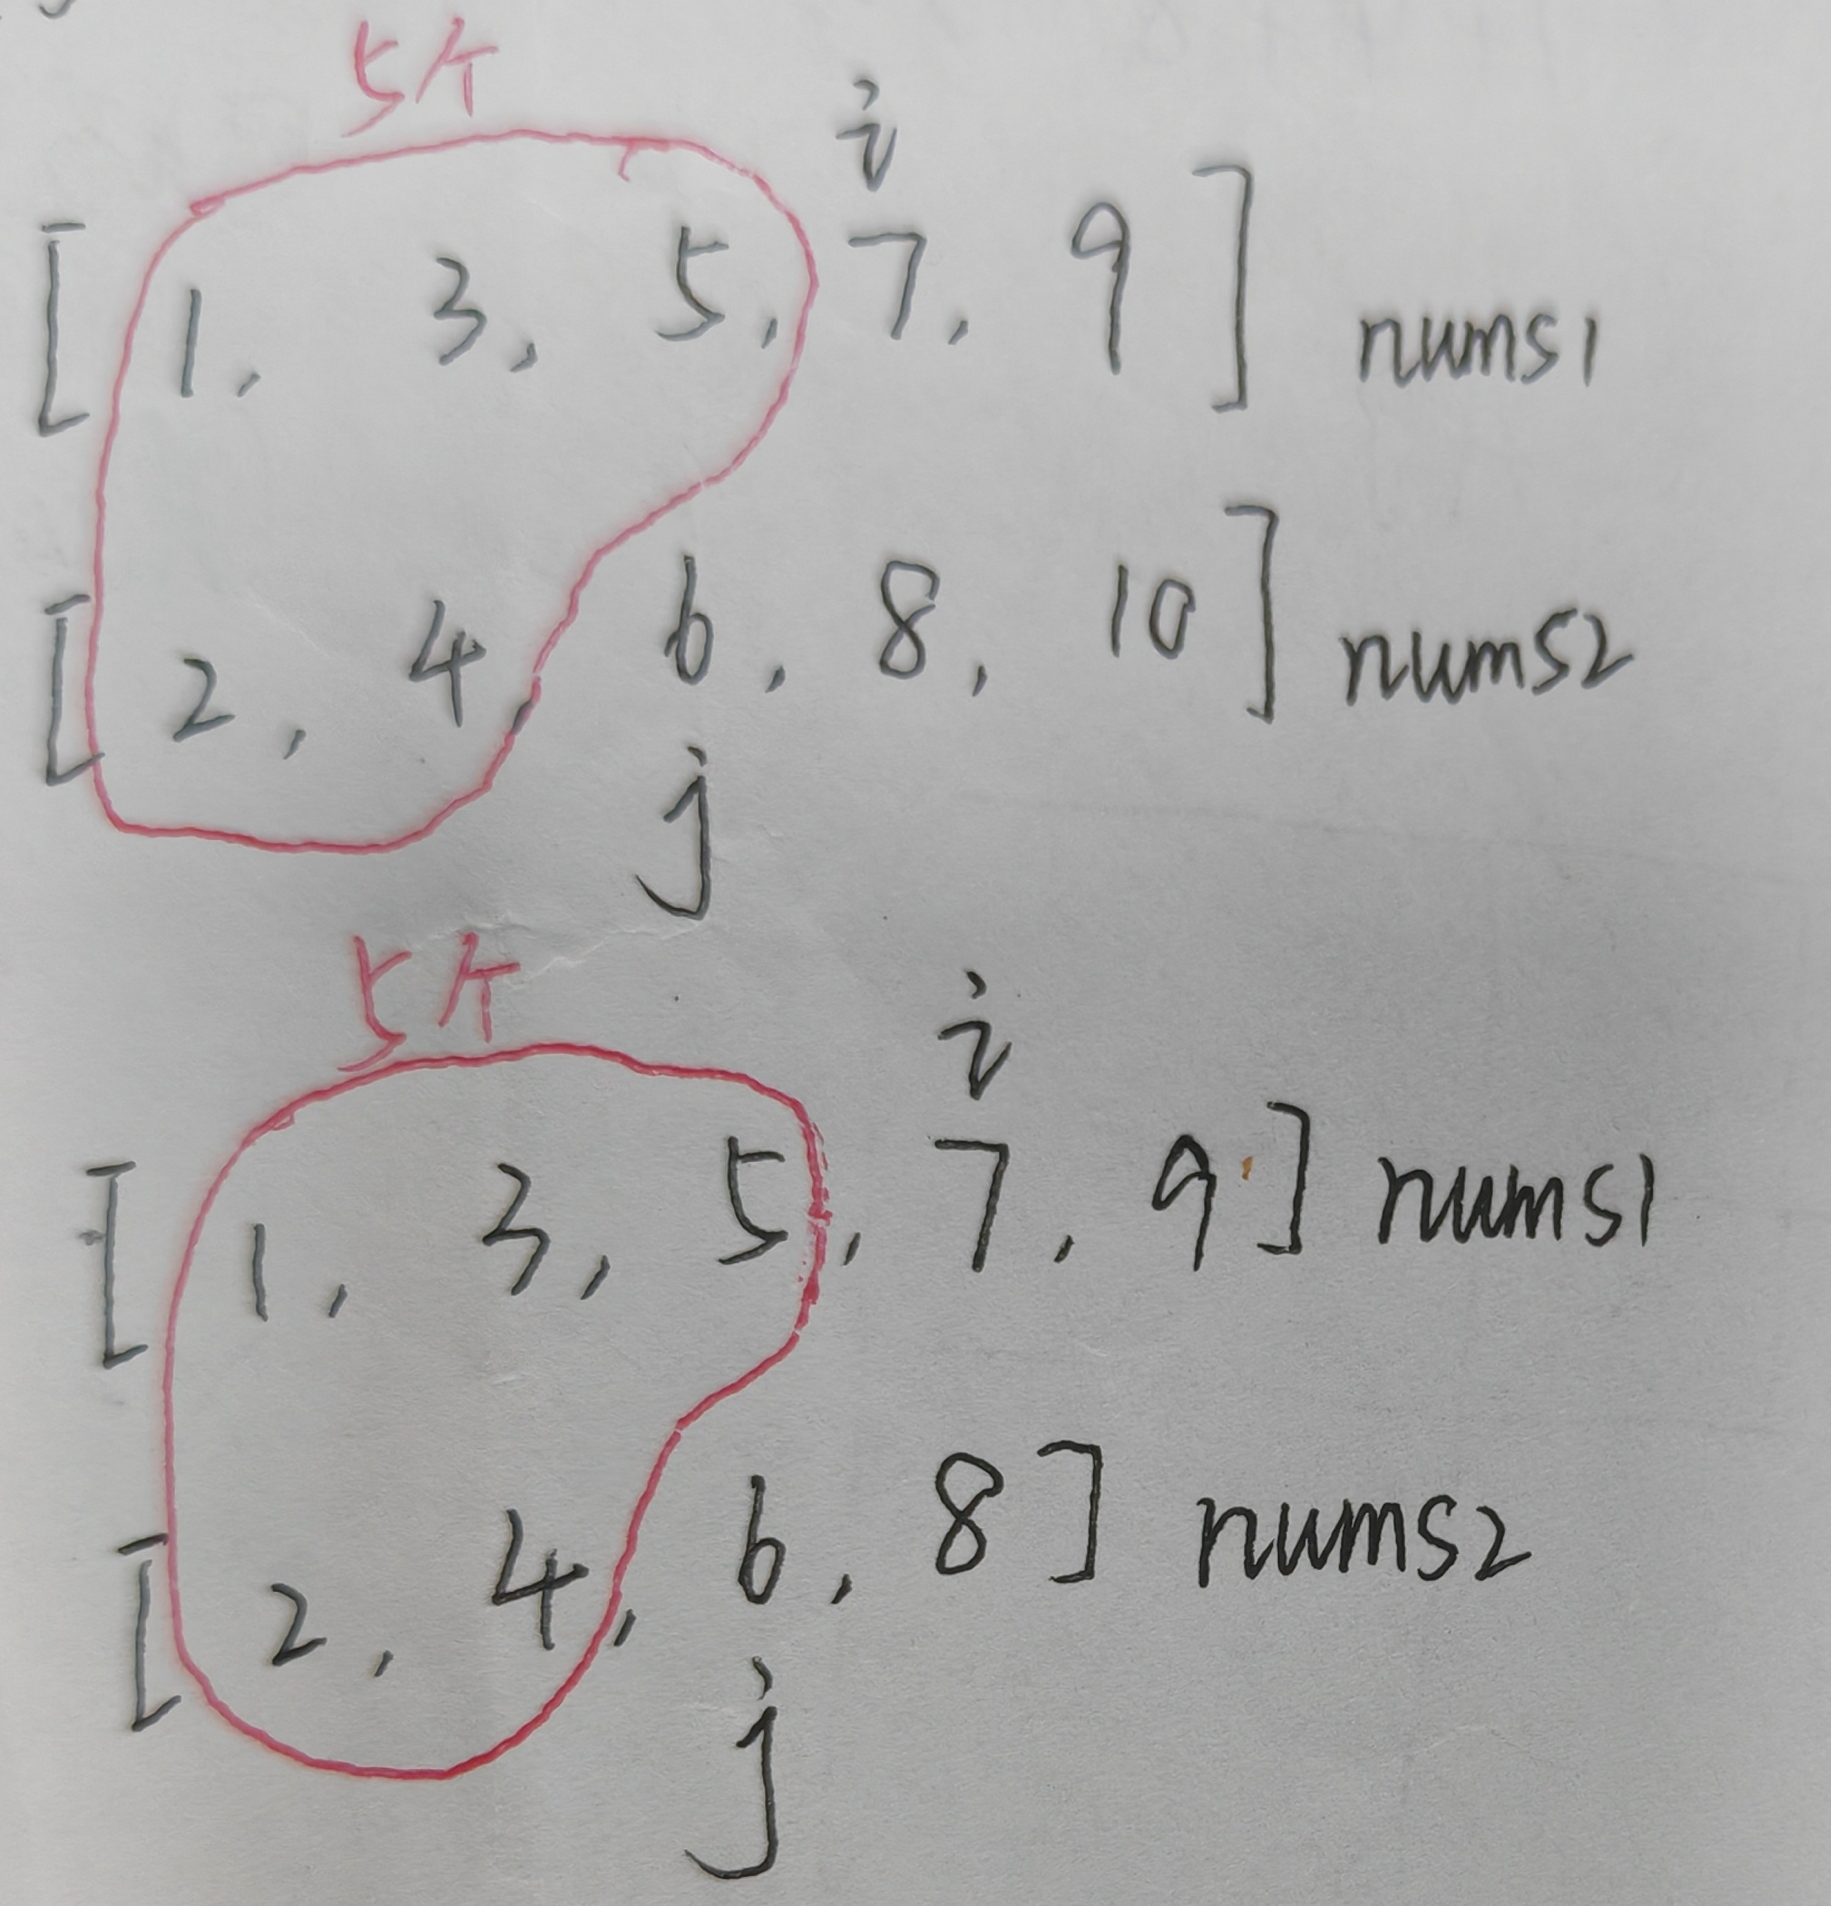 5个
i
[1, 3, 5, 7, 9] nums1
[2, 4 6, 8, 10] nums2
j
5个
i
[1, 3, 5, 7, 9] nums1
[2, 4, 6, 8] nums2
j